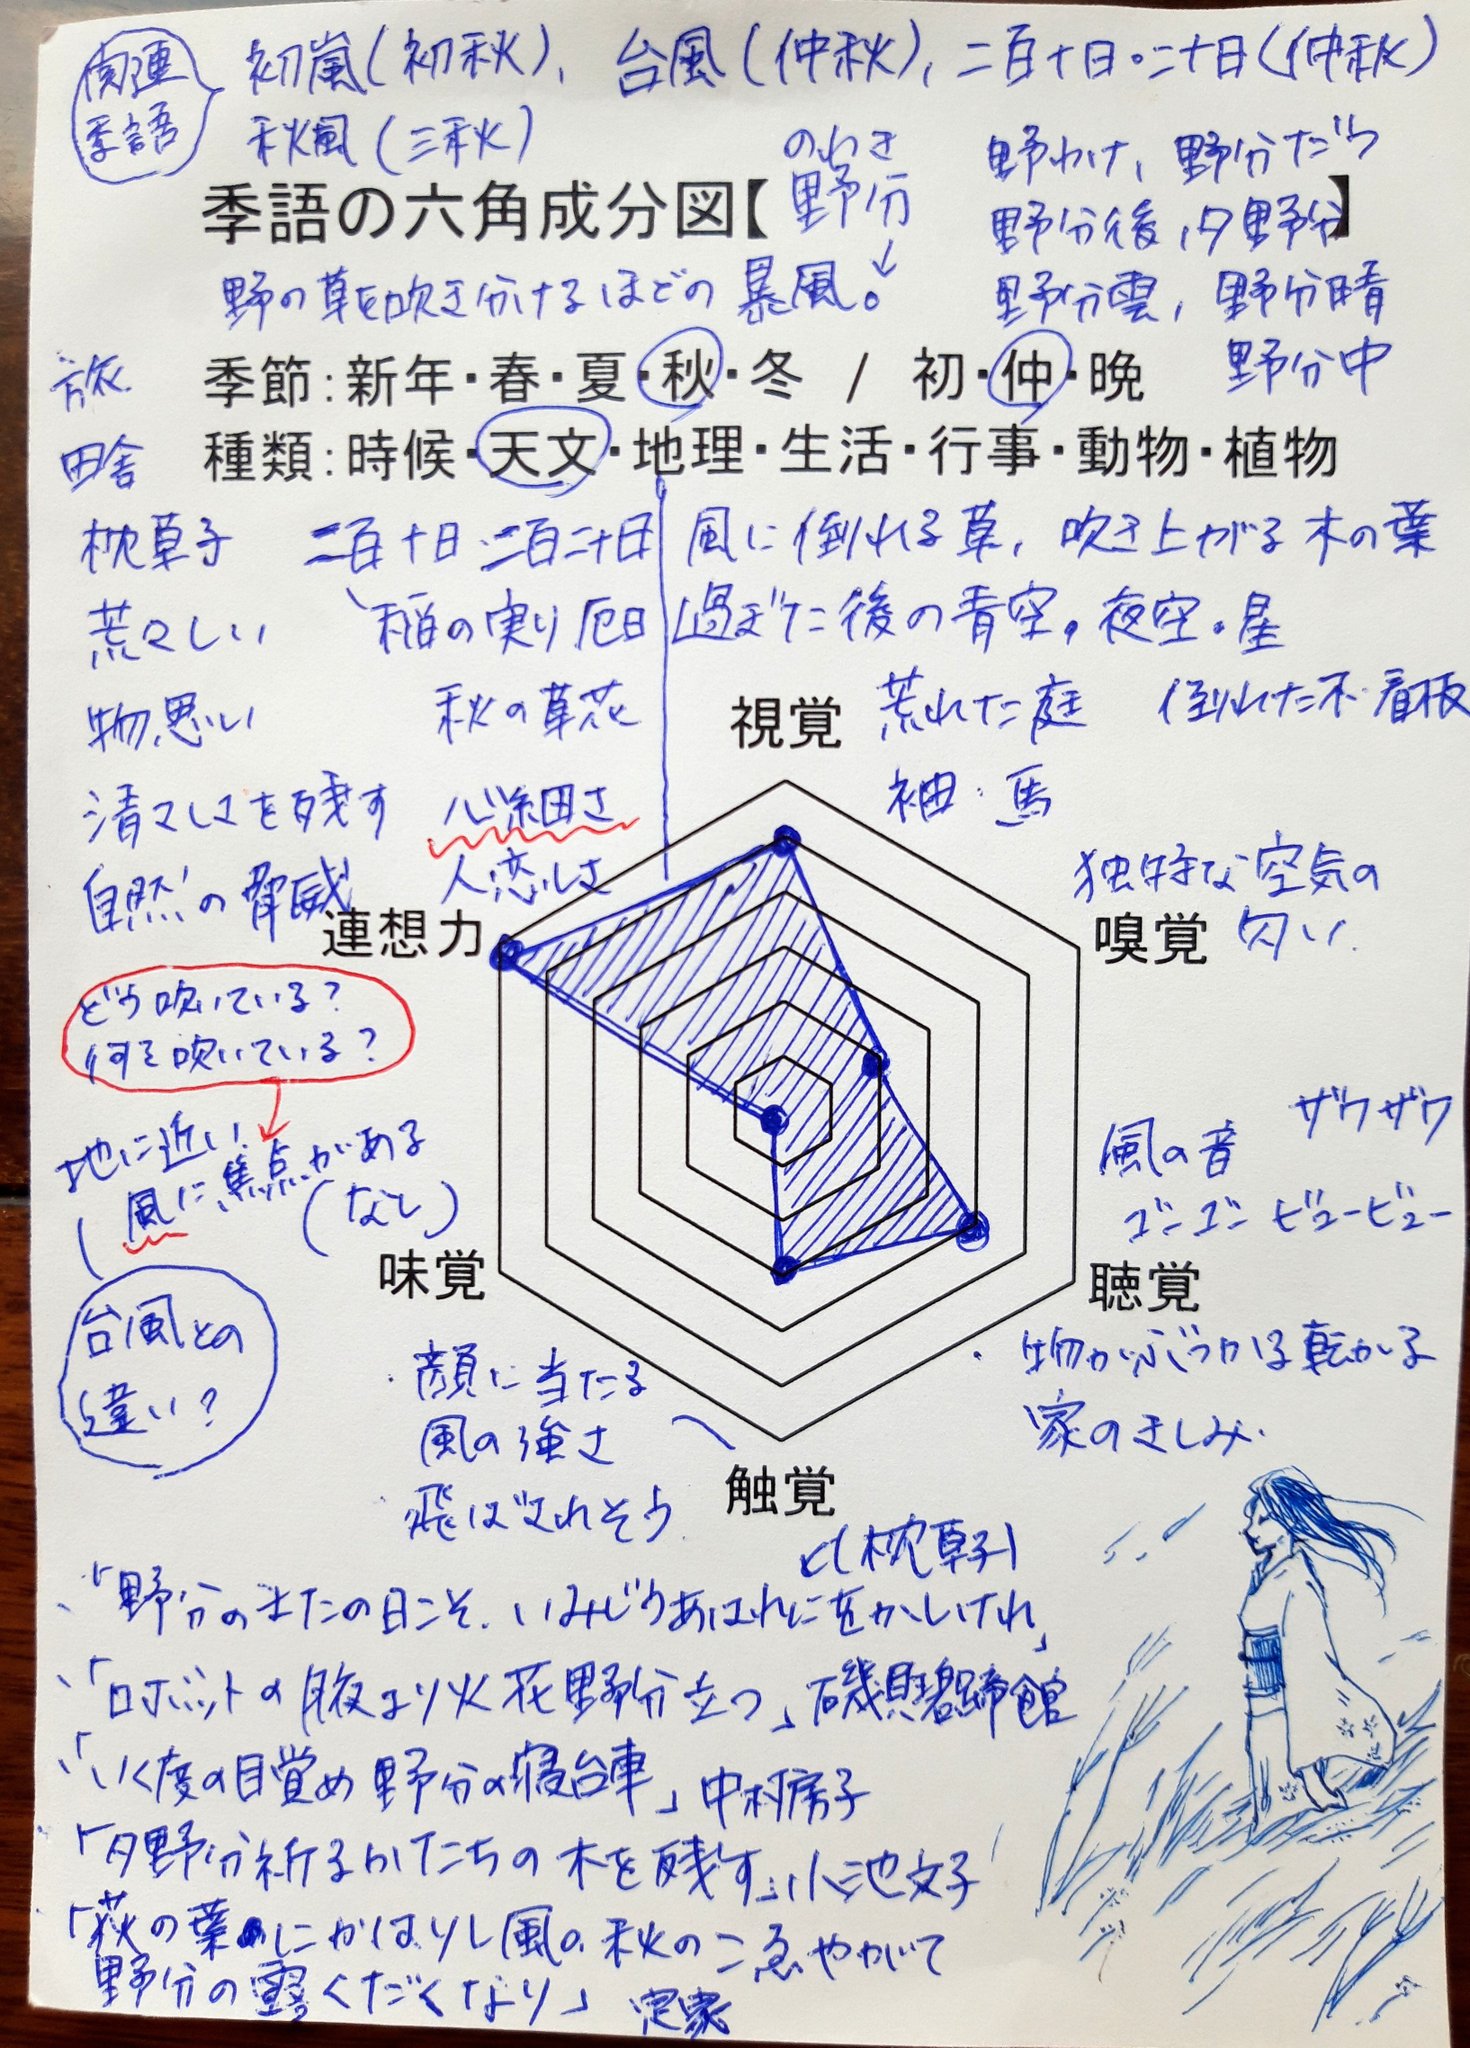 関連
季語
初嵐(初秋)、台風(仲秋)、二百十日・二十日(仲秋)
秋風(三秋)
のわき
季語の六角成分図【野分】
野わけ、野分だつ
野分後、夕野分
野分雲、野分晴
野分中
野の草を吹き分けるほどの暴風。
季節:新年・春・夏・秋・冬 / 初・仲・晩
種類:時候・天文・地理・生活・行事・動物・植物
旅
田舎
枕草子
荒々しい
物思い
清々しさを残す
自然の脅威
二百十日・二百二十日
稲の実り 厄日
秋の草花
心細さ
人恋しさ
風に倒れる草、吹き上がる木の葉
過ぎた後の青空。夜空。星
荒れた庭 倒れた木・看板
袖・馬
視覚
独特な空気の
匂い
嗅覚
連想力
どう吹いている?
何を吹いている?
地に近い
風に焦点がある
(なし)
味覚
台風との
違い?
風の音 ザワザワ
ゴーゴー ビュービュー
聴覚
物がぶつかる転がる
家のきしみ
・顔に当たる
風の強さ
・飛ばされそう
触覚
枕草子
「野分のまたの日こそ、いみじうあはれにをかしけれ」
「ロボットの腋より火花野分立つ」磯貝碧蹄館
「いく度の目覚め野分の寝台車」中村房子
「夕野分祈るかたちの木を残す」小池文子
「荻の葉にかはりし風の秋のこゑやがて
野分の露くだくなり」 定家